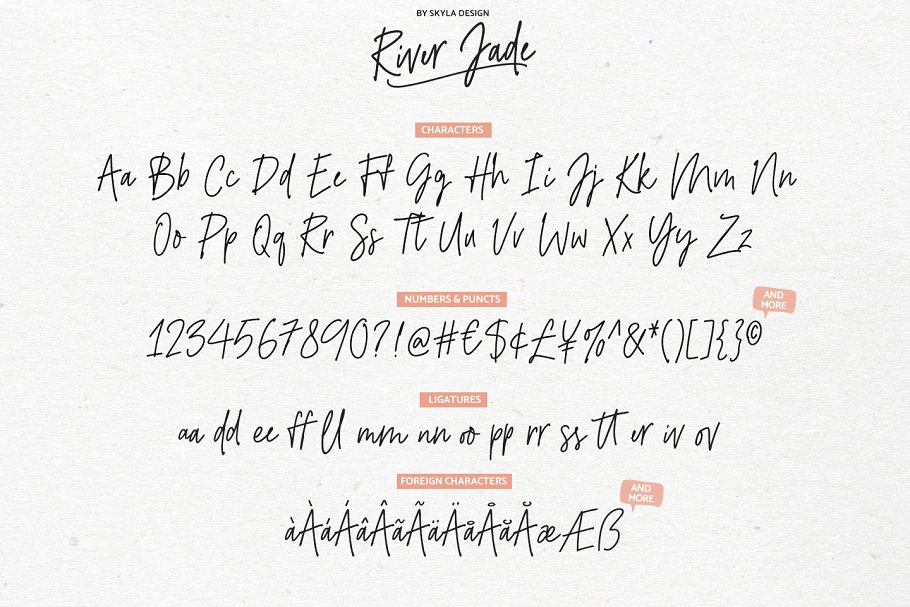 BY SKYLA DESIGN
River Jade
CHARACTERS
Aa Bb Cc Dd Ee Ff Gg Hh Ii Jj Kk Mm Nn
Oo Pp Qq Rr Ss Tt Uu Vv Ww Xx Yy Zz
NUMBERS & PUNCTS
AND MORE
1234567890?!@#€$¢£¥%^&*()[]{}©
LIGATURES
aa dd ee ff ll mm nn oo pp rr ss tt er iv ov
FOREIGN CHARACTERS
AND MORE
àÀáÁâÂãÃäÄåÅăĂæÆß